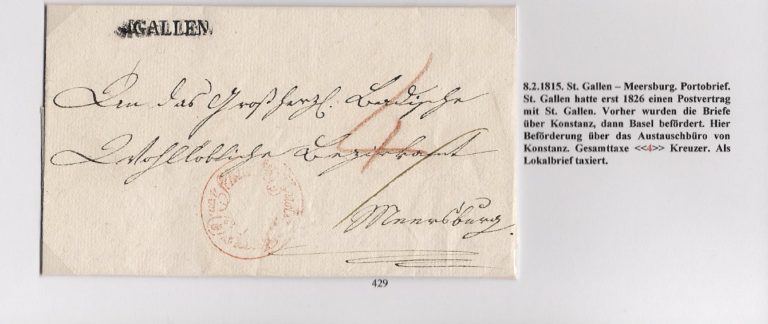 St GALLEN
An das Großherzl. Badische
Wohllöbliche Bezirksamt
4
Meersburg.
429
8.2.1815. St. Gallen – Meersburg. Portobrief.
St. Gallen hatte erst 1826 einen Postvertrag
mit St. Gallen. Vorher wurden die Briefe
über Konstanz, dann Basel befördert. Hier
Beförderung über das Austauschbüro von
Konstanz. Gesamttaxe <<4>> Kreuzer. Als
Lokalbrief taxiert.